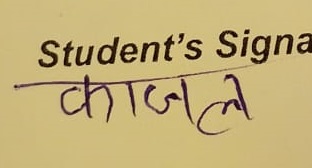 Student's Signa
काजल